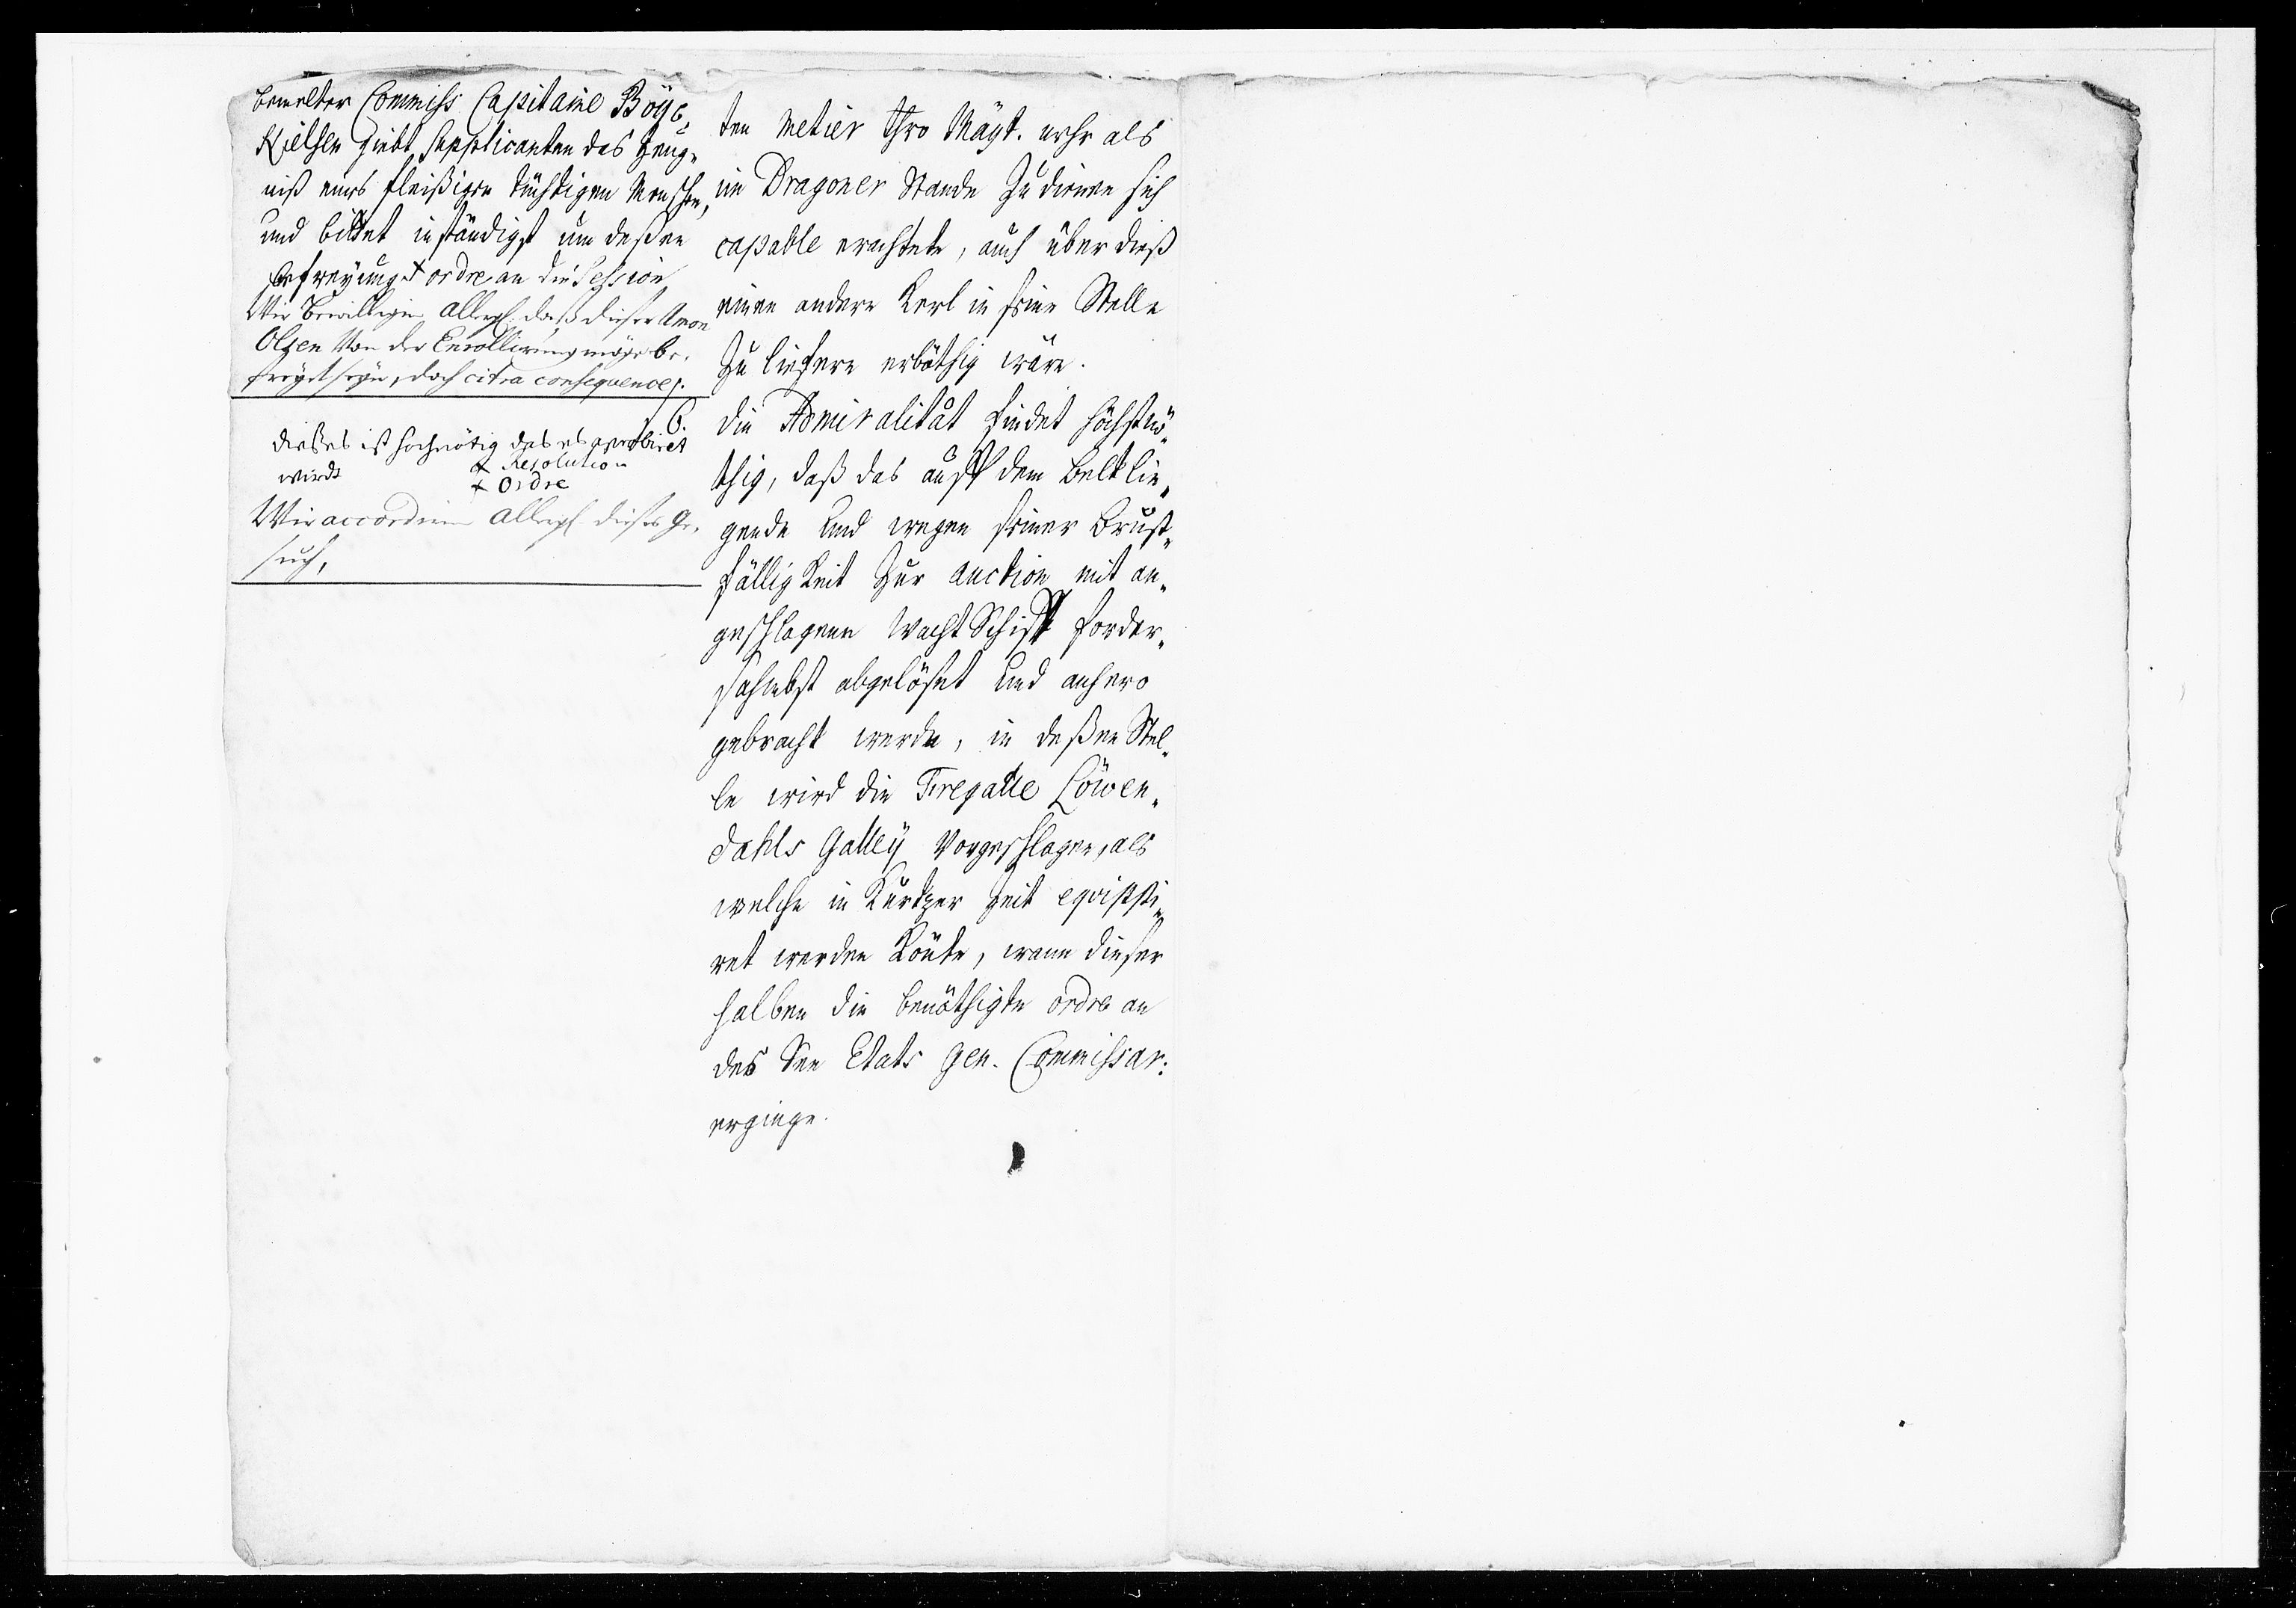 bemelter Commiss Capitaine Böye
Kielsen giebt Supplicanten das Zeug-
niß eines fleißigen tüchtigen Menschen,
und bittet inständigst um deßen
befreyung + ordre an die Session
Wir Bewilligen allergn: daß dieser Amon
Olsen Von der Enrollirung möge be-
freyet seyn, doch citra consequence.
6.
dießes ist hochnötig das es aprobiret
wirdt + Resolution
+ Ordre
Wir accordiren allergn dieses Ge-
such,
ten Metier Ihro Mayt. mehr als
im Dragoner Stande zu dienen sich
capable erachtete, auch über dieß
einen andern Kerl in seine Stelle
zu liefern erböthig wäre.
Die Admiralität findet höchstnö-
thig, daß das auff dem Belt lie-
gende und wegen seiner Brüst-
fälligkeit zur auction mit an-
geschlagene WachtSchiff forder-
sahmbst abgelöset und anhero
gebracht werde, in deßen Stel-
le wird die Fregatte Löwen-
dahls Galleÿ vorgeschlagen, als
welche in Kurtzer Zeit equippi-
ret werden könte, wann dieser
halben die benöthigte ordre an
des See Etats Gen. Commissar:
erginge.